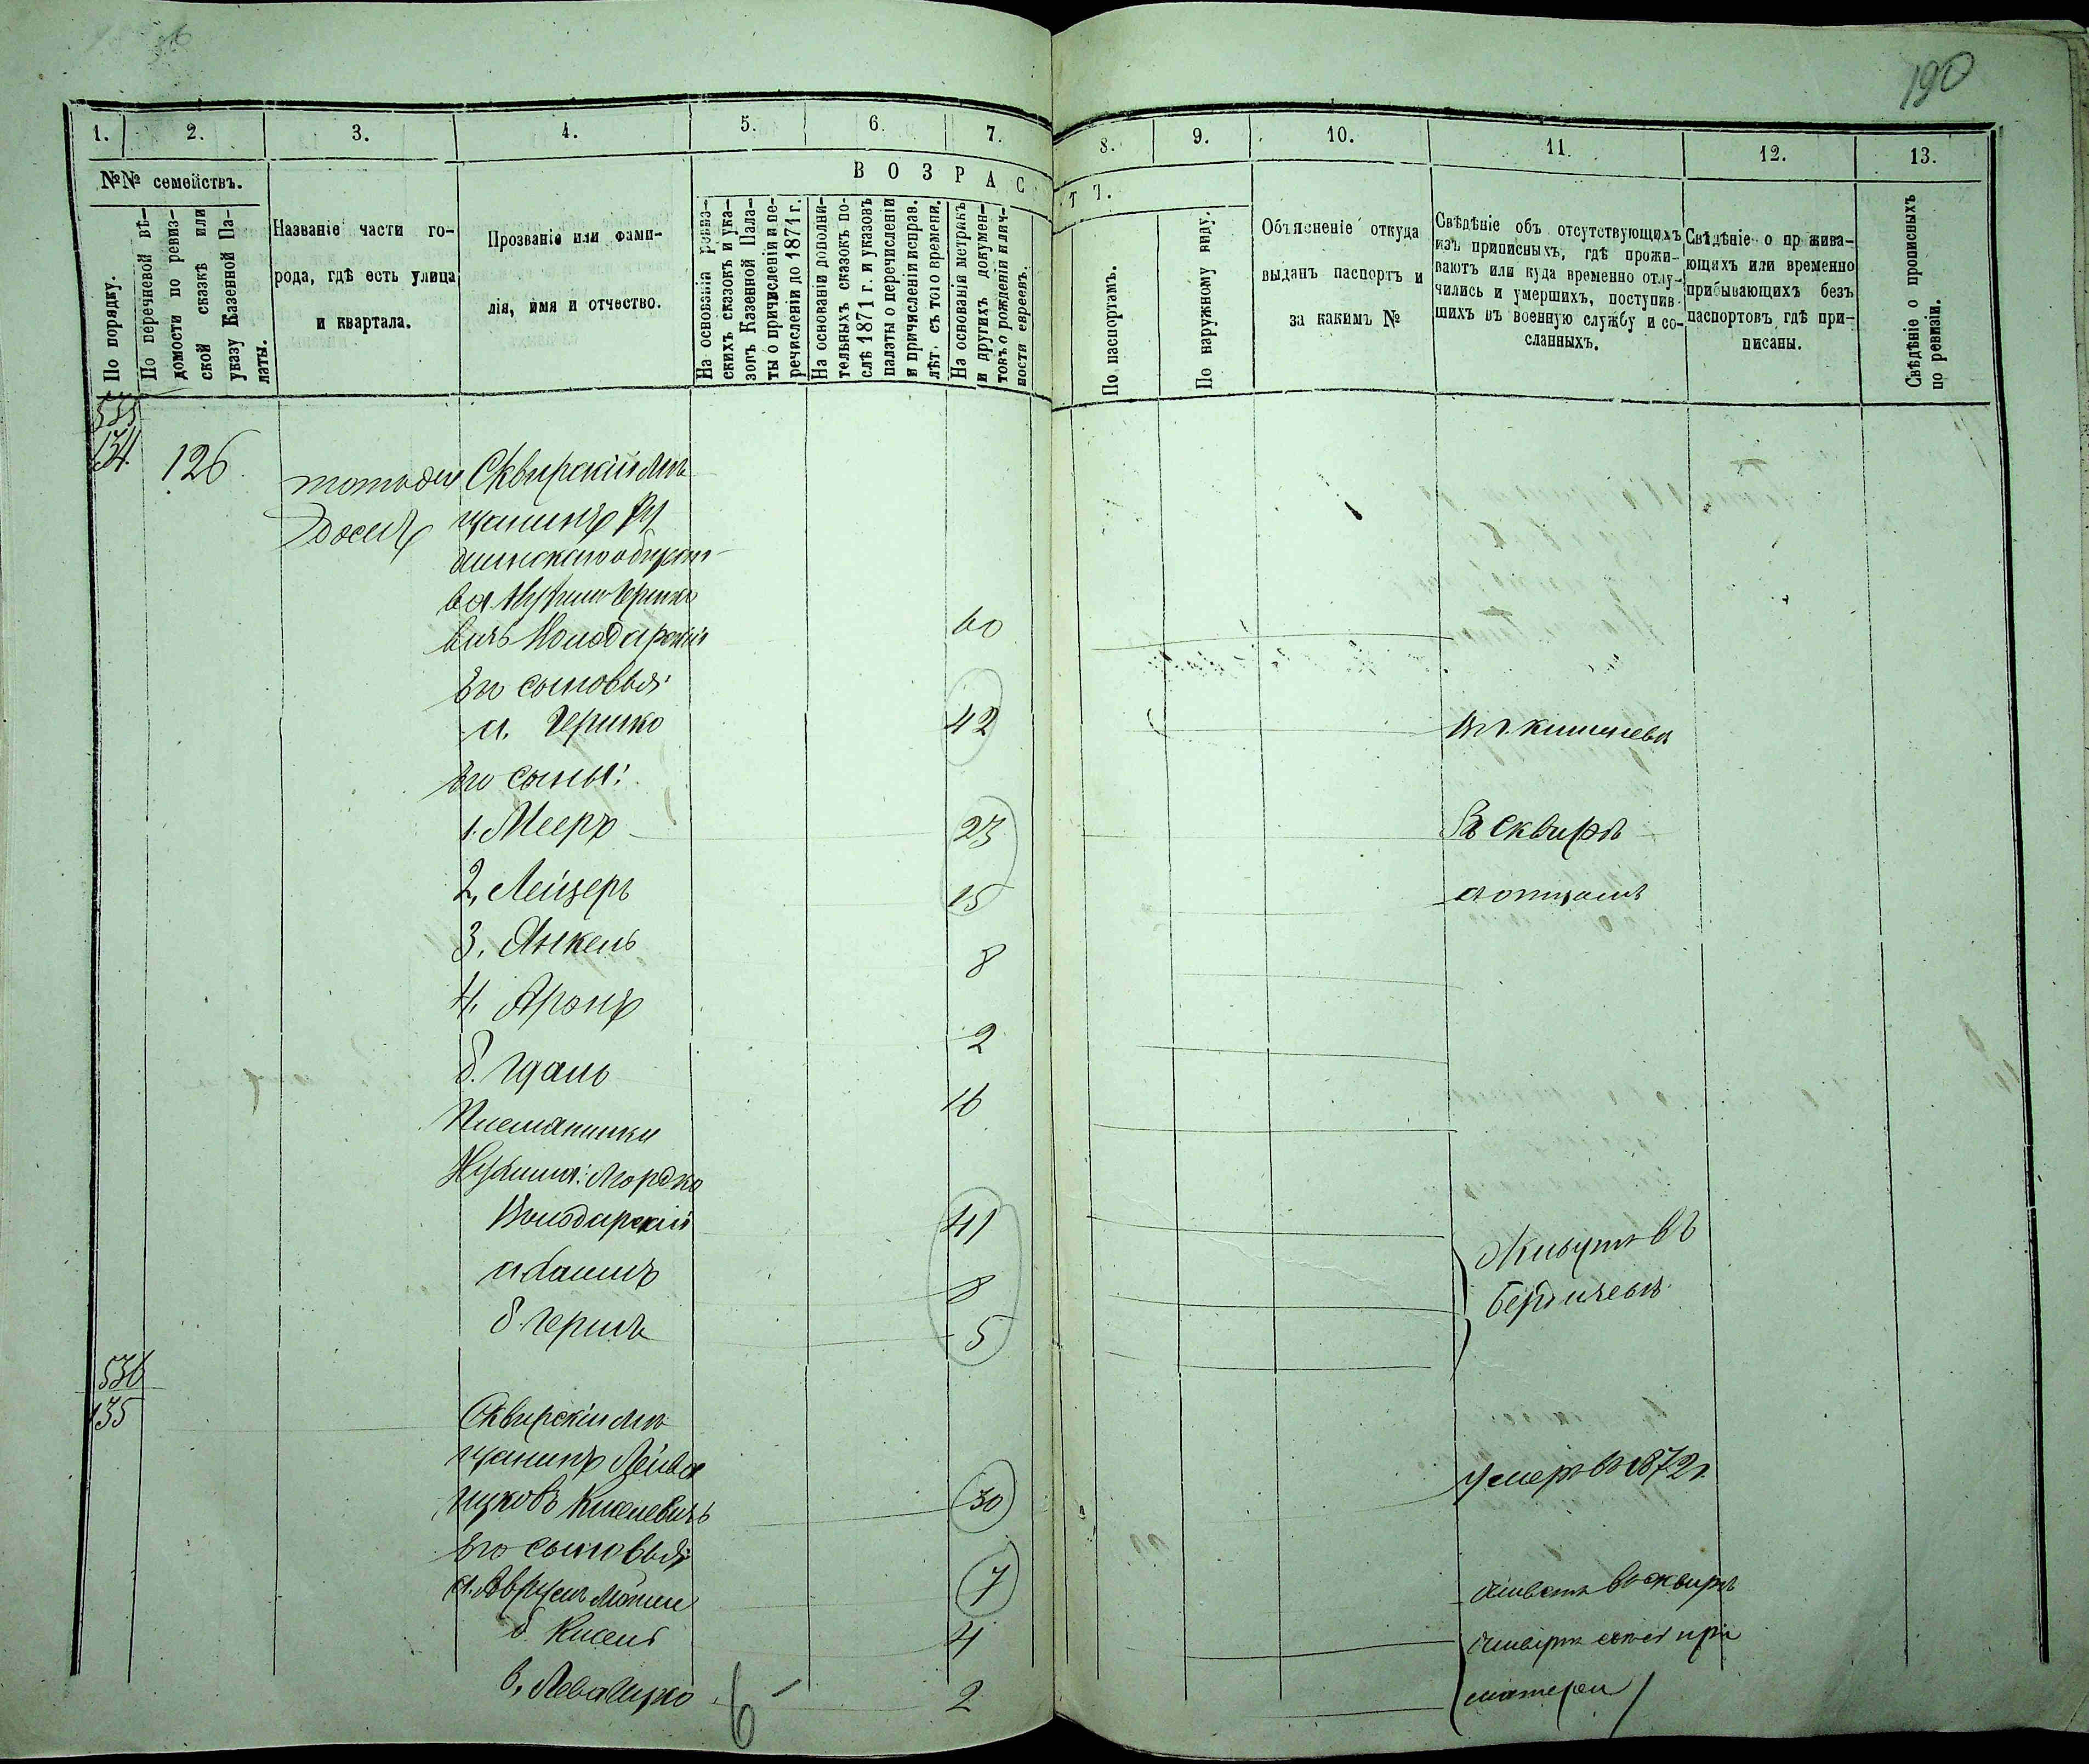 190
1. 2. 3. 4. 5. 6. 7. 8. 9. 10. 11. 12. 13.
№№ семействъ.
По порядку.
По перечневой вѣ-
домости по ревиз-
ской сказкѣ или
указу Казенной Па-
латы.
Названіе части го-
рода, гдѣ есть улица
и квартала.
Прозваніе или фами-
лія, имя и отчество.
ВОЗРАСТЪ.
На основаніи ревиз-
скихъ сказокъ и ука-
зовъ Казенной Пала-
ты о причисленіи и пе-
речисленіи до 1871 г.
На основаніи дополни-
тельныхъ сказокъ по-
слѣ 1871 г. и указовъ
палаты о перечисленіи
и причисленіи исправ.
лѣт. съ того времени.
На основаніи метрикъ
и другихъ докумен-
товъ о рожденіи и лич-
ности евреевъ.
По паспортамъ.
По наружному виду.
Объясненіе откуда
выданъ паспортъ и
за какимъ №
Свѣдѣніе объ отсутствующихъ
изъ приписныхъ, гдѣ прожи-
ваютъ или куда временно отлу-
чились и умершихъ, поступив-
шихъ въ военную службу и со-
сланныхъ.
Свѣдѣніе о прожива-
ющихъ или временно
прибывающихъ безъ
паспортовъ гдѣ при-
писаны.
Свѣдѣніе о прописныхъ
по ревизіи.
535
134. 126 Сквирскій мѣ
щанинъ
общест
ва Гершко
вичъ Володарскій 60
Его сыновья:
а. Гершко 42 Кишиневѣ
Его сыны:
1. Мееръ 23 Въ Сквирѣ
2, Лейзеръ 15 съ отцомъ
3. Янкель 8
4. Аронъ 2
б. Гдаль 16
Племянники
Мордко
Володарскій 41 Живутъ въ
а. 8 Бердичевѣ
б. Гершъ 5
536
135 Сквирскій мѣ
щанинъ Лейба
Ицковъ Киселевичъ 30 умеръ въ 1872 г.
Его сыновья:
а. 7 живетъ въ Сквирѣ
б. Кисель 4 при
в, Лейба Ицко 2 матери
6